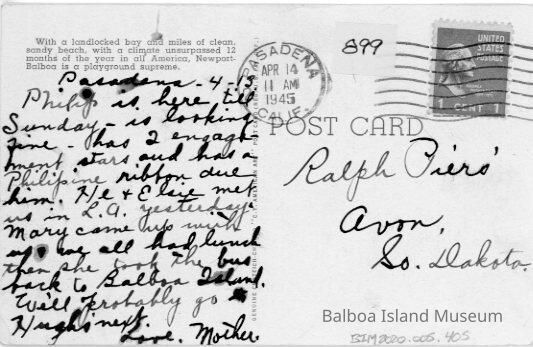 With a landlocked bay and miles of clean,
sandy beach, with a climate unsurpassed 12
months of the year in all America, Newport-
Balboa is a playground supreme.
Pasadena - 4-13
Philip is here till
Sunday - is looking
fine - has 2 engage-
ment stars and has a
Philipine ribbon due
him. He & Elsie met
us in L.A. yesterday.
Mary came up with
us we all had lunch
then she took the bus
back to Balboa Island.
We'll probably go to
Hughs' next.
Love. Mother
899
PASADENA
APR 14
11 AM
1945
CALIF.
UNITED
STATES
POSTAGE
1 CENT 1
POST CARD
Ralph Piers'
Avon,
So. Dakota.
Balboa Island Museum
BIM2020.005.405